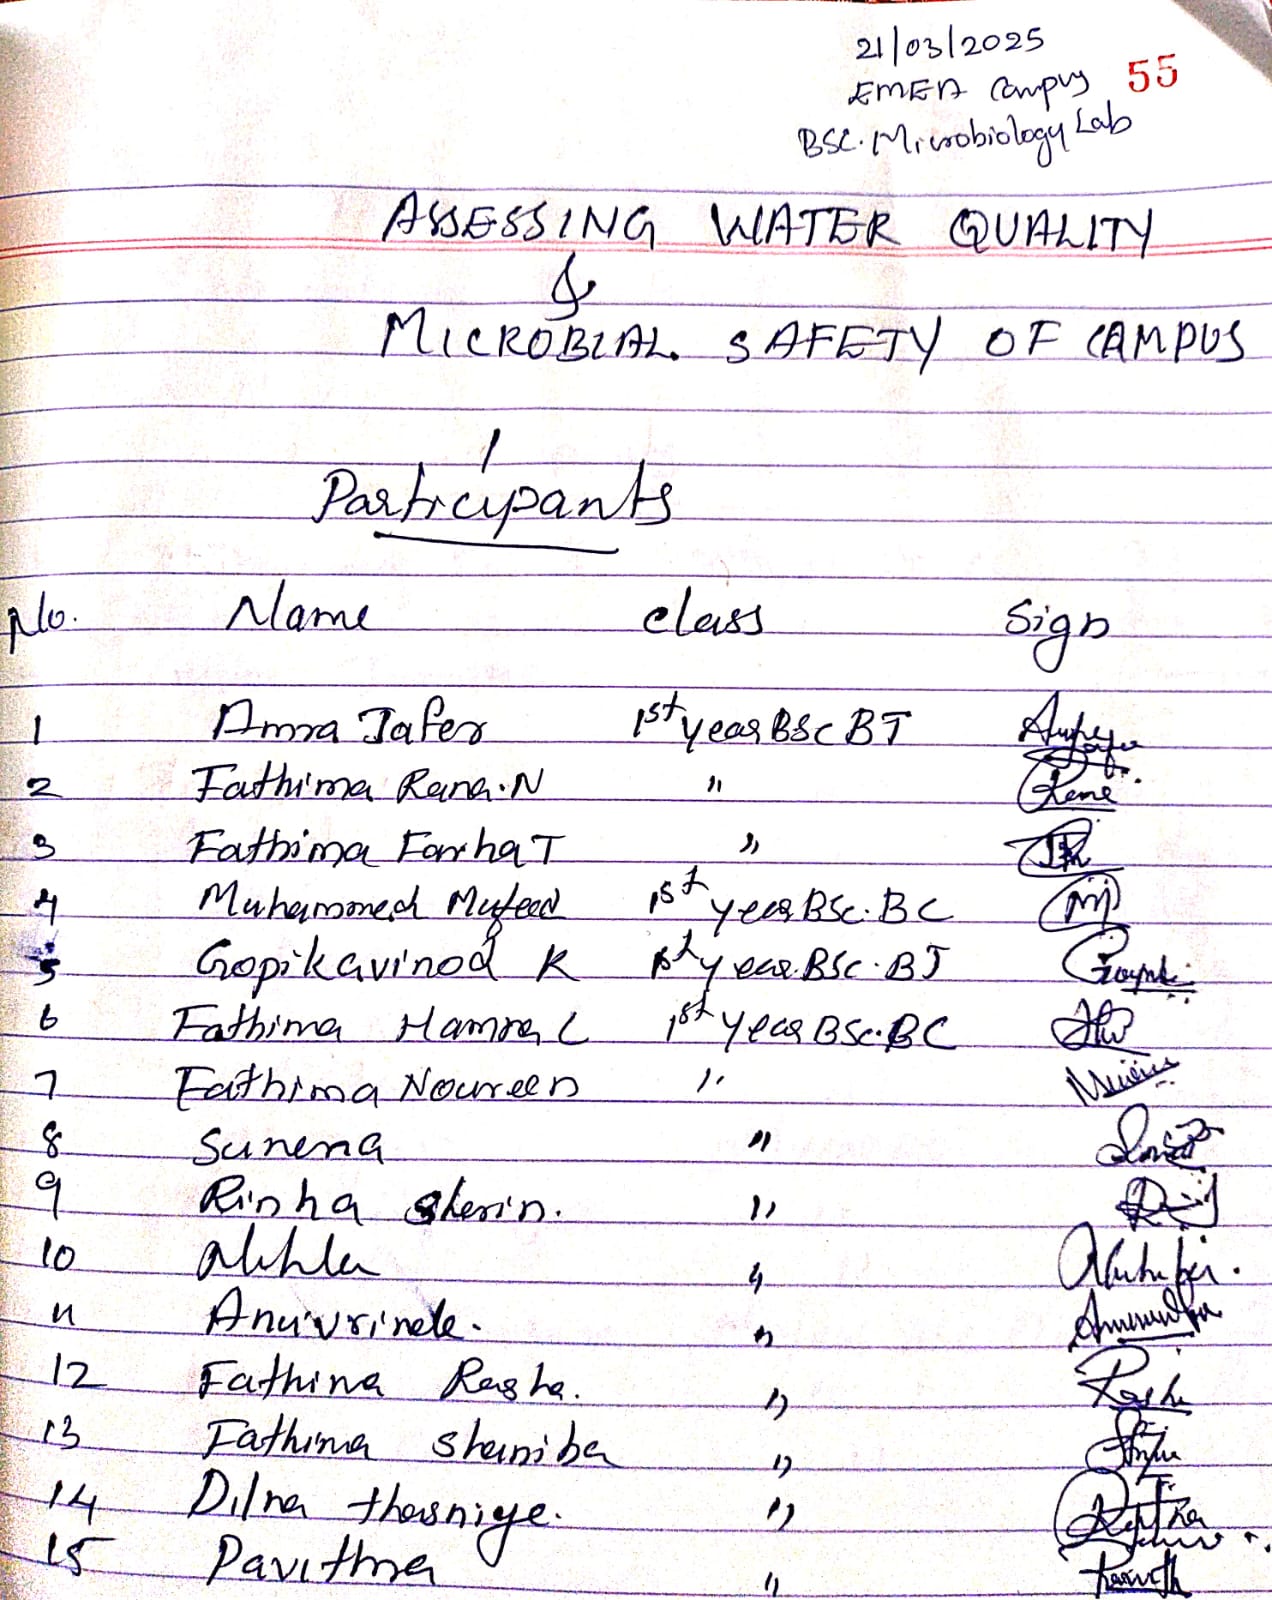 21/03/2025
EMEA Campus 55
BSC. Microbiology Lab
ASSESSING WATER QUALITY
&
MICROBIAL SAFETY OF CAMPUS
Participants
No. Name class Sign
1 Amra Jafer 1st year BSc BT
2 Fathima Rana.N "
3 Fathima Farha T "
4 Muhammed Mufeed 1st year BSc. BC
5 Gopikavinod K 1st year BSc. BT
6 Fathima Hamna C 1st year BSc. BC
7 Fathima Noureen "
8 Sunena "
9 Rinha Sherin. "
10 "
11 "
12 Fathima Rasha. Rasha "
13 Fathima Shaniba "
14 Dilna thasniye. "
15 Pavithra "